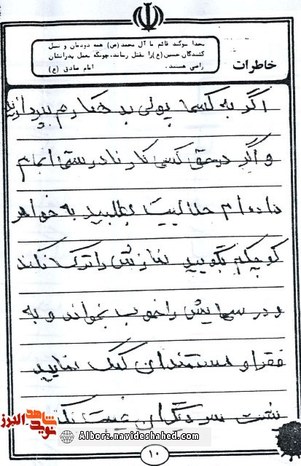 خاطرات
بخدا سوگند قائم ما آل محمد(ص) همه دودمان و نسل
کشندگان حسین (ع) را بقتل رساند، چونکه بعمل پدرانشان
راضی هستند. امام صادق (ع)
اگر به کسی پولی بدهکارم بپردازید
و اگر در حق کسی کار نادرستی انجام
داده‌ام حلالیت بطلبید به خواهر
کوچکم بگویید نمازش را ترک نکند
و درسهایش را خوب بخواند و به
فقرا و مستمندان کمک نمایید
پشت سر دیگران غیبت نکنید
نوید شاهد البرز
Alborz.navideshahed.com
۱۰